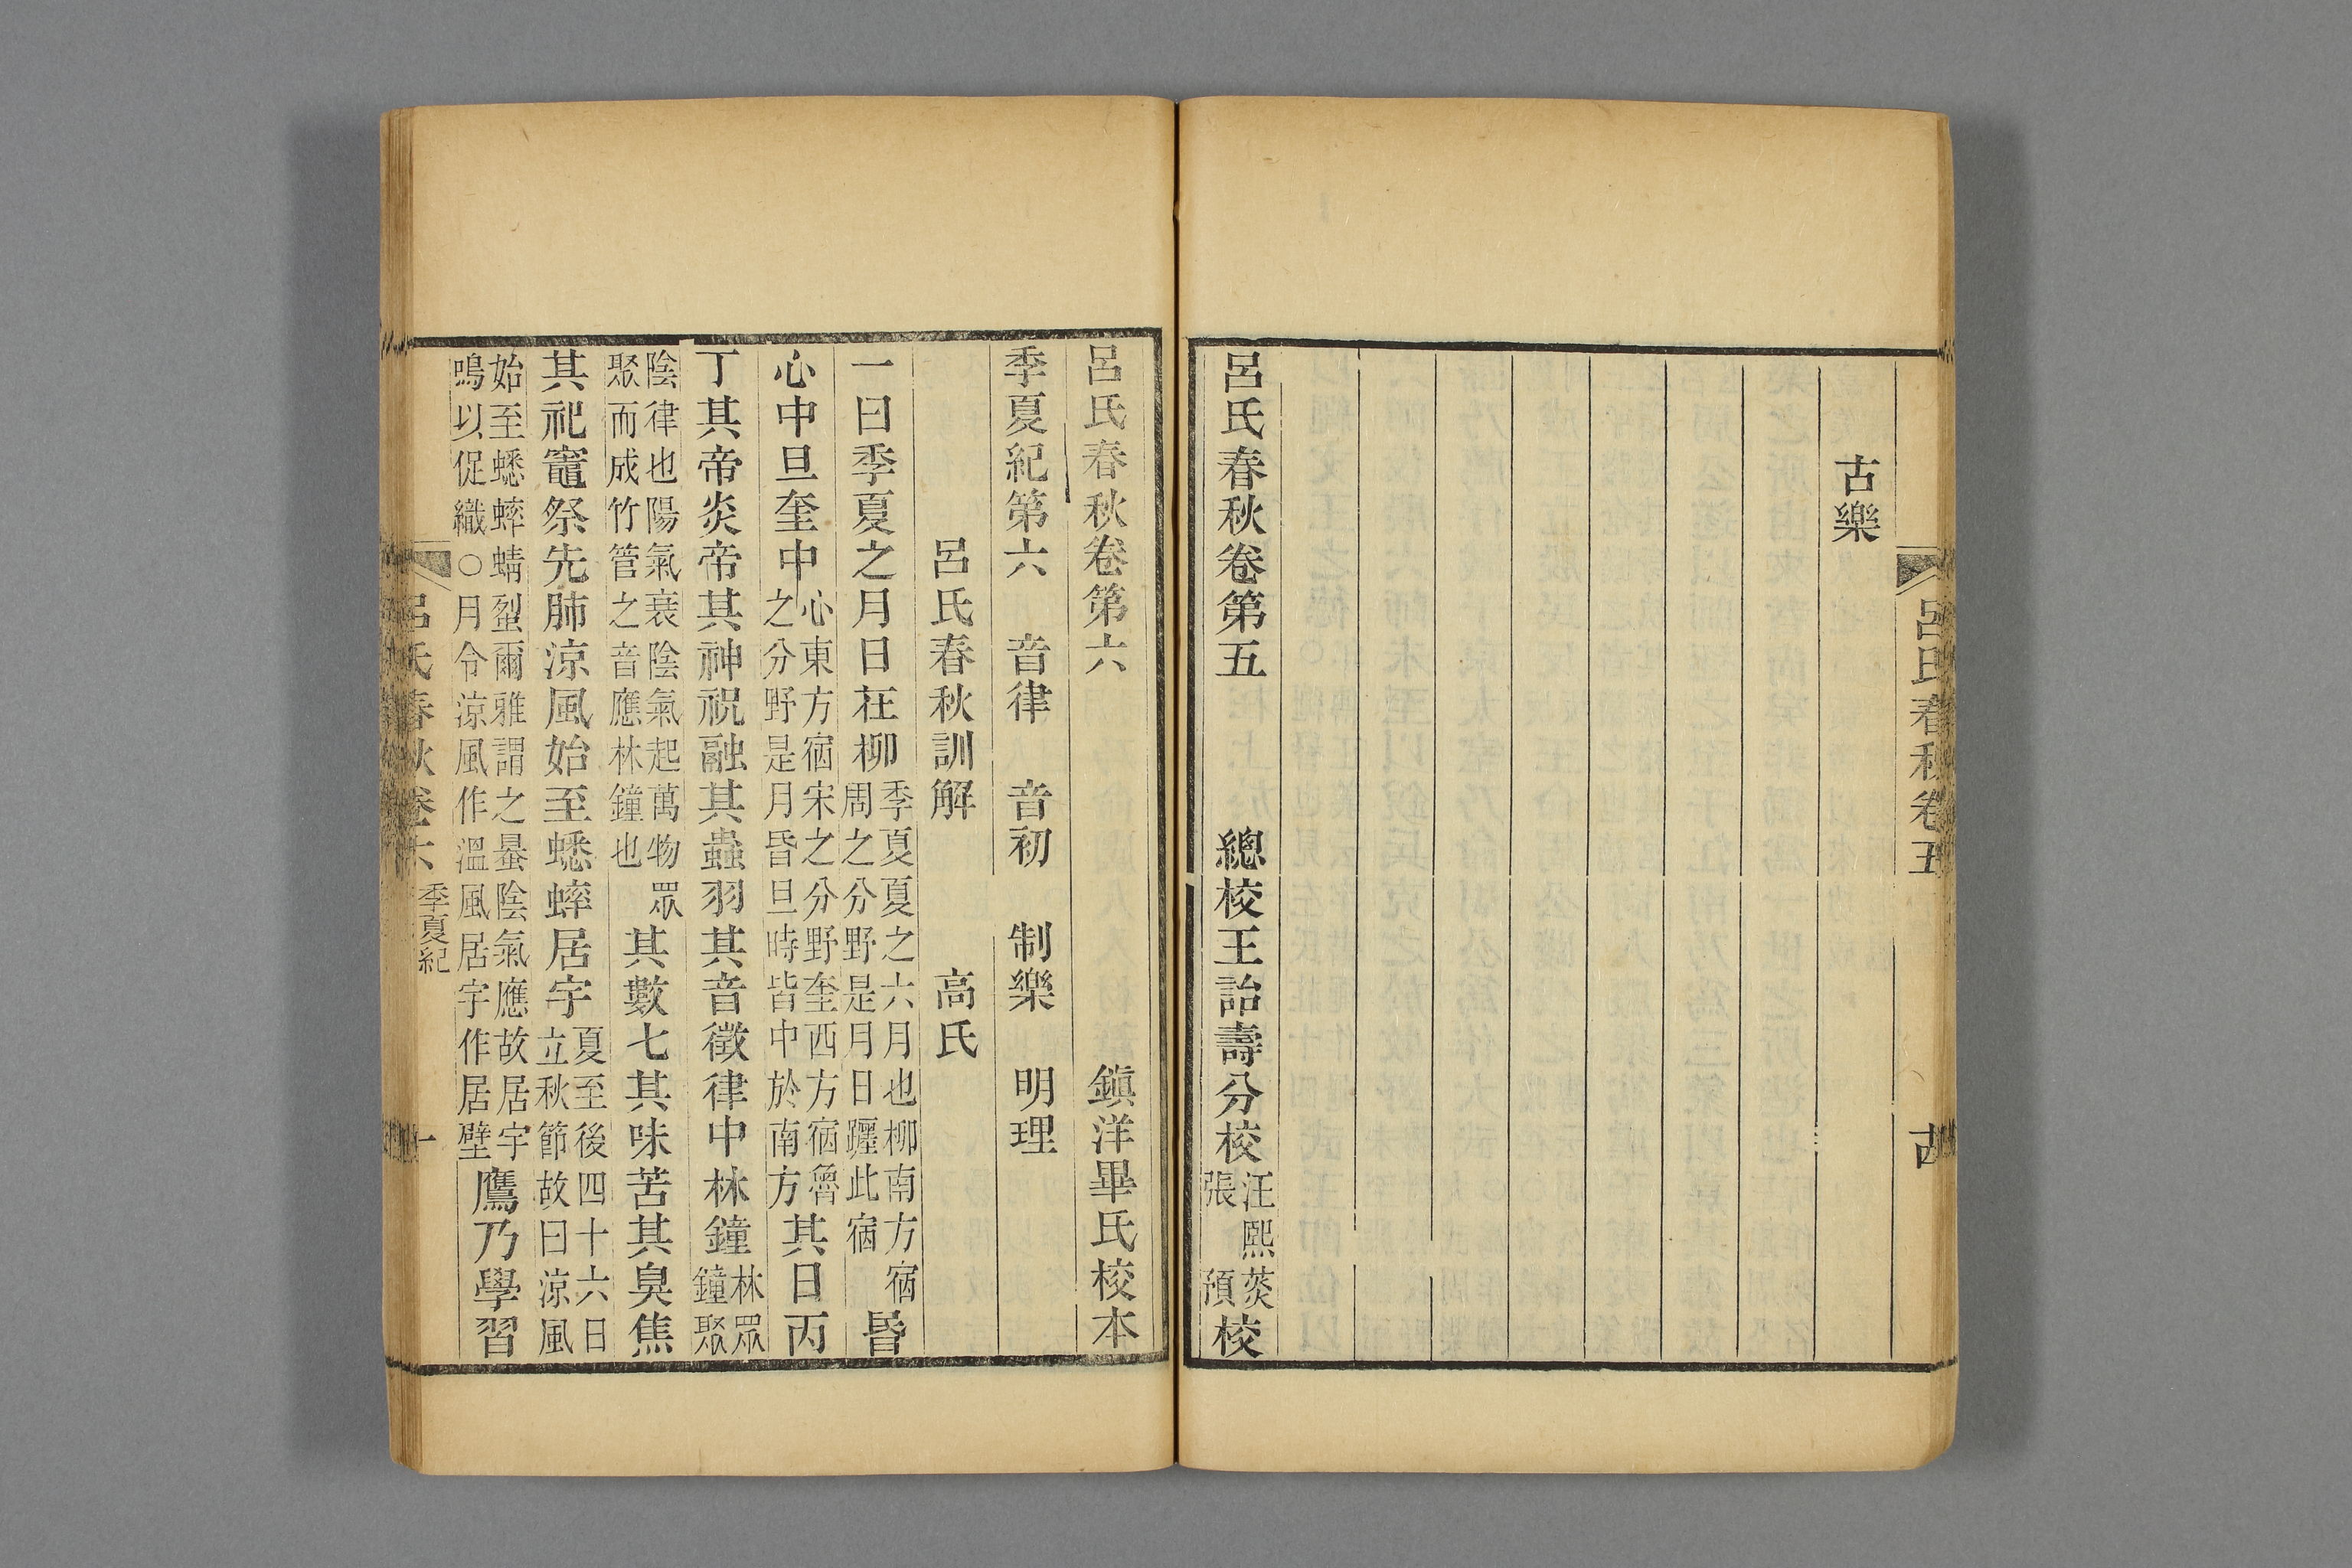 呂氏春秋卷五
古
古樂
呂氏春秋卷第五 總校王詒壽分校汪熙張預校
呂氏春秋卷第六 鎮洋畢氏校本
季夏紀第六 音律 音初 制樂 明理
呂氏春秋訓解 高氏
一曰季夏之月日在柳季夏夏之六月也柳南方宿周之分野是月日躔此宿昏
心中旦奎中心東方宿宋之分野奎西方宿魯之分野是月昏旦時皆中於南方其日丙
丁其帝炎帝其神祝融其蟲羽其音徵律中林鐘林眾鐘聚
陰律也陽氣衰陰氣起萬物眾聚而成竹管之音應林鐘也其數七其味苦其臭焦
其祀竈祭先肺涼風始至蟋蟀居宇夏至後四十六日立秋節故曰涼風
始至蟋蟀蜻蛚爾雅謂之蛬陰氣應故居宇鳴以促織○月令涼風作溫風居宇作居壁鷹乃學習
呂氏春秋卷六 季夏紀
一